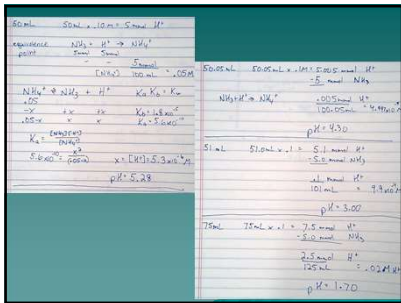 50mL 50mL x .10M = 5 mmol H⁺
equivalence point NH₃ + H⁺ → NH₄⁺
5mmol 5mmol
- - 5mmol
[NH₄⁺] 100mL = .05M
NH₄⁺ ⇌ NH₃ + H⁺ Ka Kb = Kw
.05
-x +x +x Kb = 1.8x10⁻⁵
.05-x x x Ka = 5.6x10⁻¹⁰
Ka = [NH₃][H⁺] / [NH₄⁺]
5.6x10⁻¹⁰ = x² / (.05-x) x = [H⁺] = 5.3x10⁻⁶ M
pH = 5.28
50.05mL 50.05mL x .1M = 5.005 mmol H⁺
-5 mmol NH₃
NH₃ + H⁺ → NH₄⁺ .005mmol H⁺ / 100.05mL = 4.997x10⁻⁵
pH = 4.30
51 mL 51.0mL x .1 = 5.1 mmol H⁺
-5.0 mmol NH₃
.1 mmol H⁺
101 mL = 9.9x10⁻⁴
pH = 3.00
75mL 75mL x .1 = 7.5 mmol H⁺
-5.0 mmol NH₃
2.5 mmol H⁺
125mL = .02M H⁺
pH = 1.70